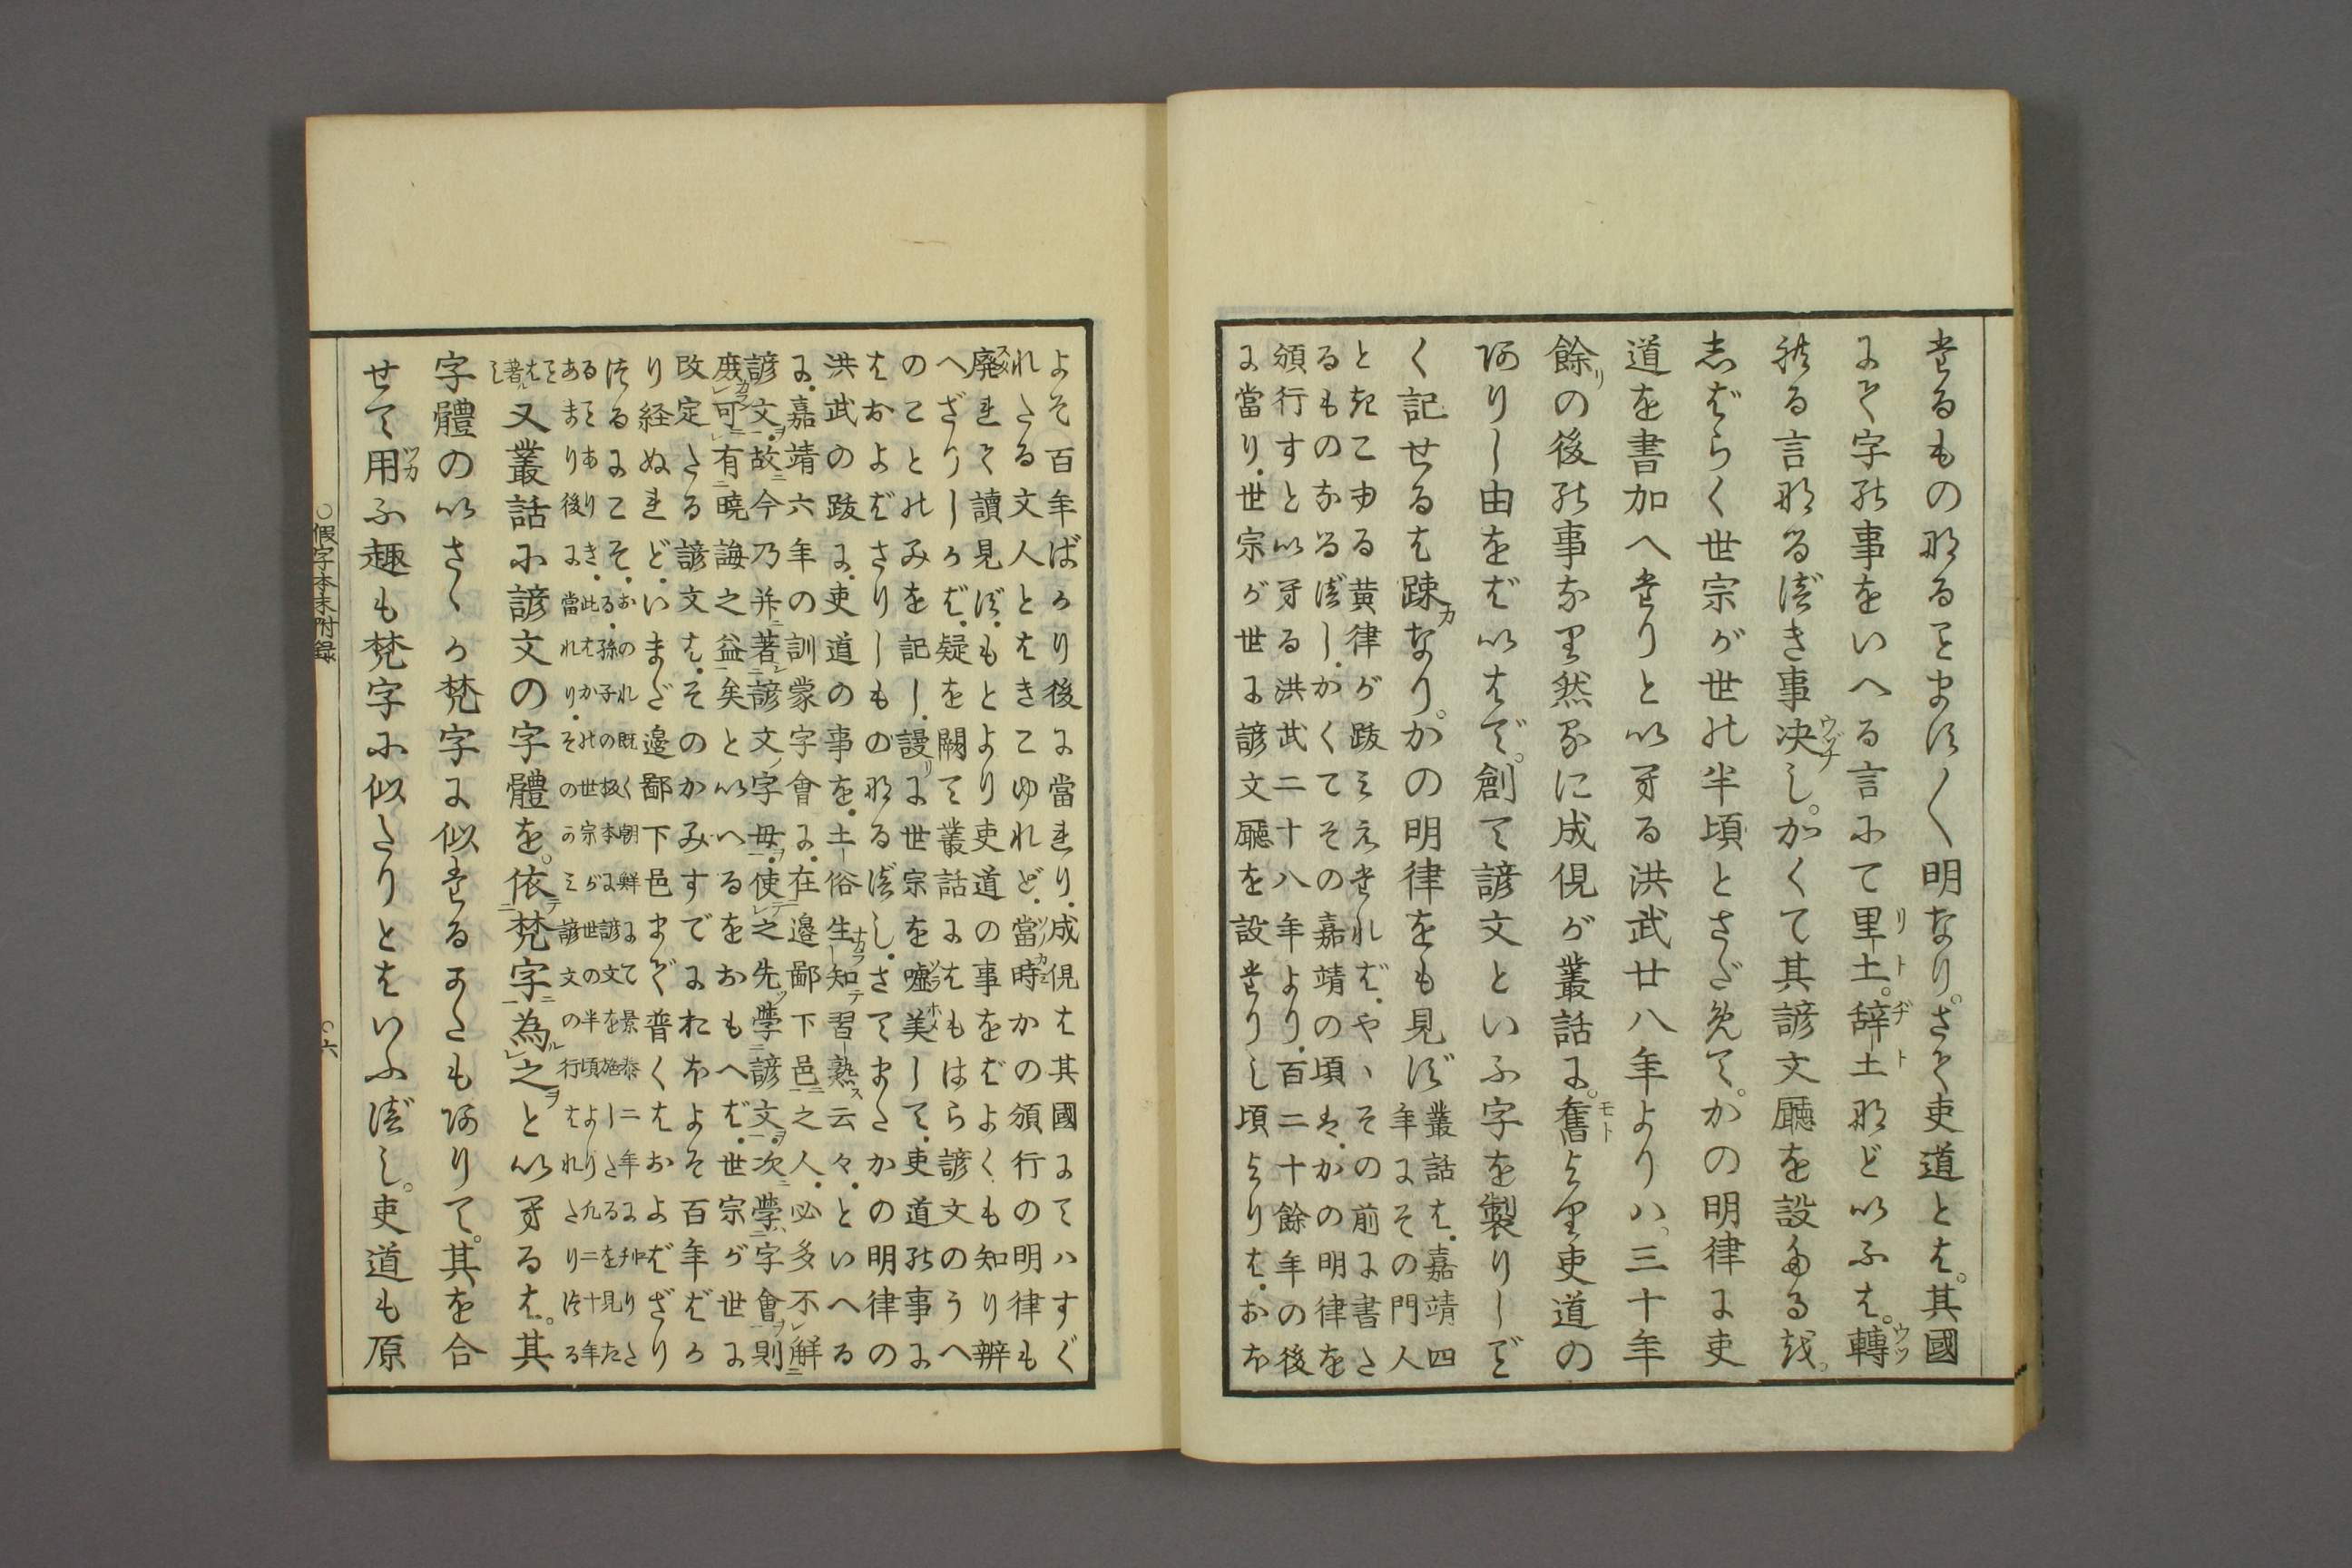 たるもの那ることまほ〱明なり。さて吏道とは。其國
にて字の事をいへる言にて里土。辞土那ど以ふは。轉
れる言那るべき事决し。かくて其諺文廳を設たる越
志ばらく世宗が世の半頃とさだめて。かの明律に吏
道を書加へたりと以へる洪武廿八年よりハ。三十年
餘の後の事なり然るに成俔が叢話に。舊より吏道の
阿りし由をば以はで。創て諺文といふ字を製りしご
く記せるは踈なり。かの明律をも見ず
叢話は。嘉靖四
年にその門人
ときこゆる黄律が跋みえたれば。やゝその前に書た
るものなるべし。かくてその嘉靖の頃は。かの明律を
頒行すと以へる洪武二十八年より。百二十餘年の後
に當り。世宗が世に諺文廳を設たりし頃よりは。おほ
よそ百年ばかり後に當れり。成俔は其國にてハすぐ
れたる文人とはきこゆれど。當時かの頒行の明律も
廃れて讀見ず。もとより吏道の事をばよくも知り辨
へざりしかば。疑を闕て叢話にはもはら諺文のうへ
のことのみを記し。謾に世宗を嘘美して。吏道の事に
はおよばさりしもの那るべし。さてまたかの明律の
洪武の跋に。吏道の事を。土俗生知習熟云々。といへる
に。嘉靖六年の訓蒙字會に。在邉鄙下邑之人。必多不解
諺文。故今乃并著諺文字母。使之先學諺文。次學字會則
庻可有曉誨之益矣と以へるをおもへば。世宗が世に
改定たる諺文は。そのかみすでにおほよそ百年ばか
り経ぬれど。いまだ邉鄙下邑まで普くはおよばざり
又叢話に諺文の字體を。依梵字為之と以へるは。其
字體の以さゝか梵字に似たるあたも阿りて。其を合
せて用ふ趣も梵字に似たりとはいふべし。吏道も原
〇假字本末附録
〇六